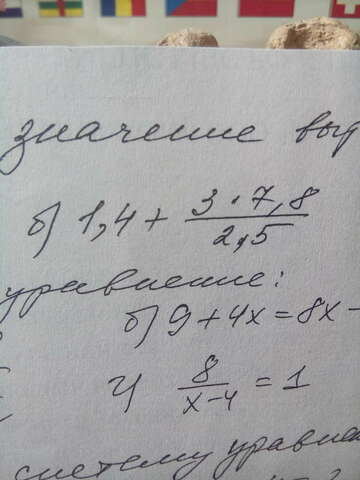 значение выр
б) 1,4 + 3 · 7,8 / 2,5
уравнение:
б) 9 + 4x = 8x -
г) 8 / x-4 = 1
систему уравне